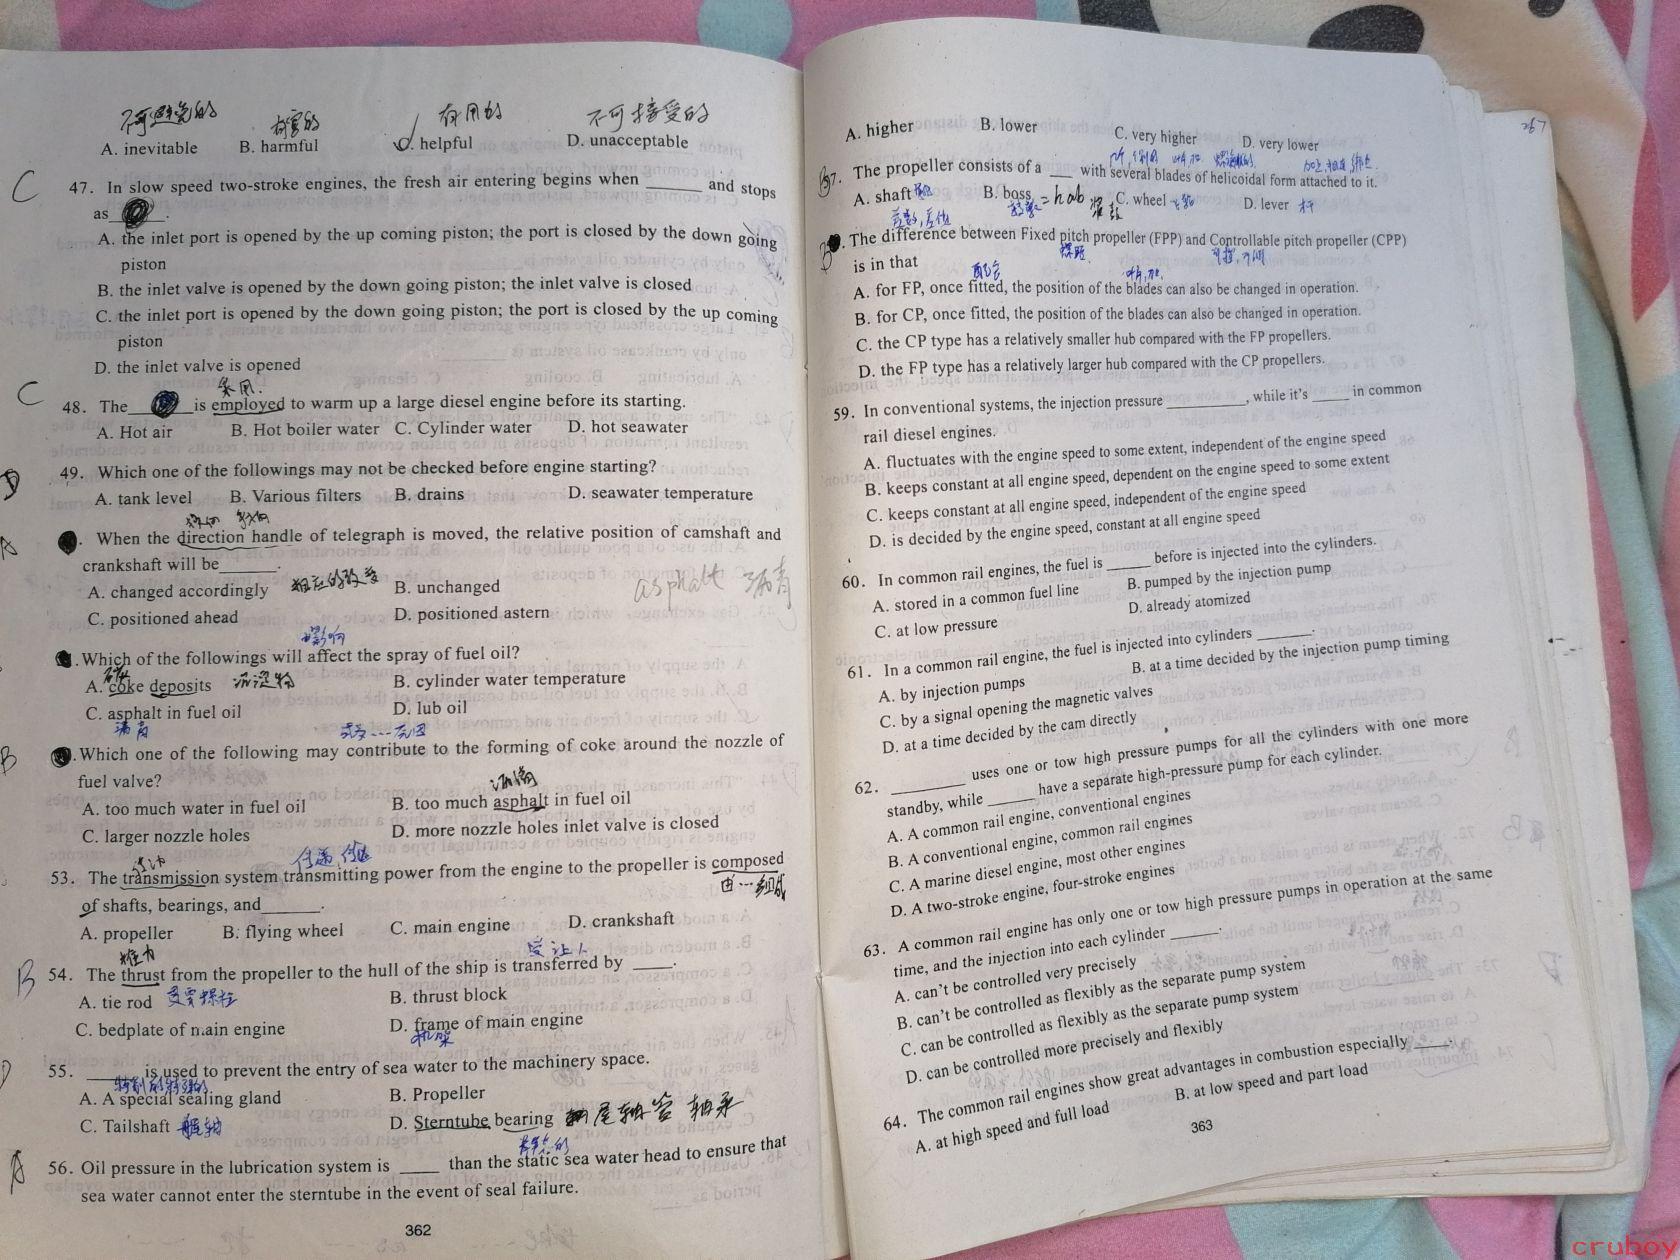 不可避免的 有害的 有用的 不可接受的
A. inevitable B. harmful C. helpful D. unacceptable
C 47. In slow speed two-stroke engines, the fresh air entering begins when ______ and stops
as______.
A. the inlet port is opened by the up coming piston; the port is closed by the down going
piston
B. the inlet valve is opened by the down going piston; the inlet valve is closed
C. the inlet port is opened by the down going piston; the port is closed by the up coming
piston
D. the inlet valve is opened
采用.
C 48. The ______ is employed to warm up a large diesel engine before its starting.
A. Hot air B. Hot boiler water C. Cylinder water D. hot seawater
D 49. Which one of the followings may not be checked before engine starting?
A. tank level B. Various filters B. drains D. seawater temperature
A . When the direction handle of telegraph is moved, the relative position of camshaft and
crankshaft will be______.
A. changed accordingly 相应的改变 B. unchanged asphalt 沥青
C. positioned ahead D. positioned astern
影响
.Which of the followings will affect the spray of fuel oil?
A. coke deposits 沉淀物 B. cylinder water temperature
C. asphalt in fuel oil D. lub oil
沥青
B .Which one of the following may contribute to the forming of coke around the nozzle of
fuel valve?
沥青
A. too much water in fuel oil B. too much asphalt in fuel oil
C. larger nozzle holes D. more nozzle holes inlet valve is closed
传递,传输
53. The transmission system transmitting power from the engine to the propeller is composed
由…组成
of shafts, bearings, and______.
A. propeller B. flying wheel C. main engine D. crankshaft
推力
B 54. The thrust from the propeller to the hull of the ship is transferred by ____.
A. tie rod 贯穿螺栓 B. thrust block
C. bedplate of main engine D. frame of main engine
机架
D 55. ______ is used to prevent the entry of sea water to the machinery space.
特别的特殊的
A. A special sealing gland B. Propeller
C. Tailshaft 艉轴 D. Sterntube bearing 尾轴管 轴承
静态的
A 56. Oil pressure in the lubrication system is ____ than the static sea water head to ensure that
sea water cannot enter the sterntube in the event of seal failure.
362
267
A. higher B. lower C. very higher D. very lower
B 57. The propeller consists of a ___ with several blades of helicoidal form attached to it.
A. shaft B. boss = hub 桨毂 C. wheel D. lever 杆
B . The difference between Fixed pitch propeller (FPP) and Controllable pitch propeller (CPP)
螺距 可控,可调
is in that
配合 叶,桨
A. for FP, once fitted, the position of the blades can also be changed in operation.
B. for CP, once fitted, the position of the blades can also be changed in operation.
C. the CP type has a relatively smaller hub compared with the FP propellers.
D. the FP type has a relatively larger hub compared with the CP propellers.
59. In conventional systems, the injection pressure __________, while it's _____ in common
rail diesel engines.
A. fluctuates with the engine speed to some extent, independent of the engine speed
B. keeps constant at all engine speed, dependent on the engine speed to some extent
C. keeps constant at all engine speed, independent of the engine speed
D. is decided by the engine speed, constant at all engine speed
60. In common rail engines, the fuel is ______ before is injected into the cylinders.
A. stored in a common fuel line B. pumped by the injection pump
C. at low pressure D. already atomized
61. In a common rail engine, the fuel is injected into cylinders _______.
A. by injection pumps B. at a time decided by the injection pump timing
C. by a signal opening the magnetic valves
D. at a time decided by the cam directly
62. _________ uses one or tow high pressure pumps for all the cylinders with one more
standby, while ______ have a separate high-pressure pump for each cylinder.
A. A common rail engine, conventional engines
B. A conventional engine, common rail engines
C. A marine diesel engine, most other engines
D. A two-stroke engine, four-stroke engines
63. A common rail engine has only one or tow high pressure pumps in operation at the same
time, and the injection into each cylinder ______.
A. can't be controlled very precisely
B. can't be controlled as flexibly as the separate pump system
C. can be controlled as flexibly as the separate pump system
D. can be controlled more precisely and flexibly
64. The common rail engines show great advantages in combustion especially ____.
A. at high speed and full load B. at low speed and part load
363
cruboy